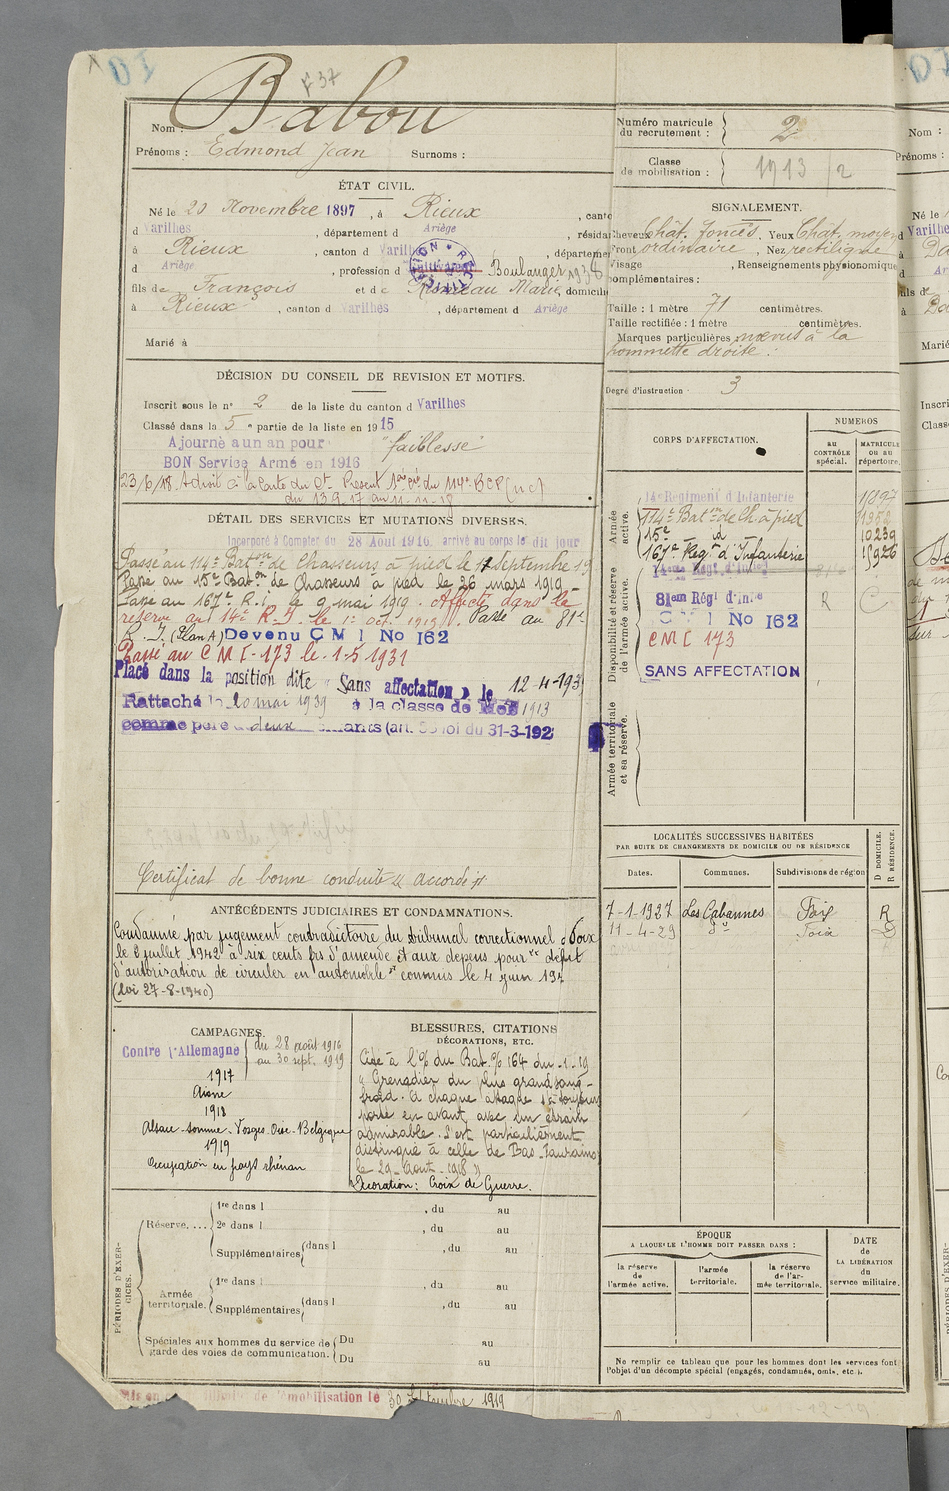 F 37
Nom : Babou
Prénoms : Edmond Jean Surnoms :
Numéro matricule du recrutement : 2
Classe de mobilisation : 1913 / 2
ÉTAT CIVIL.
Né le 20 Novembre 1897, à Rieux, canto
d Varilhes, département d Ariège, résidan
à Rieux, canton d Varilh, départemen
d Ariège, profession d Cultivateur Boulanger 1938
fils de François et de Marie, domicilié
à Rieux, canton d Varilhes, département d Ariège
Marié à
SIGNALEMENT.
Cheveux Chât. foncés. Yeux Chât. moyen
Front ordinaire, Nez rectiligne
Visage , Renseignements physionomique
complémentaires :
Taille : 1 mètre 71 centimètres.
Taille rectifiée : 1 mètre centimètres.
Marques particulières : nævus à la
pommette droite.
Degré d'instruction : 3
DÉCISION DU CONSEIL DE REVISION ET MOTIFS.
Inscrit sous le n° 2 de la liste du canton d Varilhes
Classé dans la 5e partie de la liste en 1915
Ajourné à un an pour "faiblesse"
BON Service Armé en 1916
23/6/18. A droit à la Carte du Ct. Présent 114e BCP (nc)
du 13.9.17 au 11.11.18
DÉTAIL DES SERVICES ET MUTATIONS DIVERSES.
Incorporé à Compter du 28 Aout 1916. arrivé au corps le dit jour.
Passé au 114e Baton de Chasseurs à pied le 17 Septembre 19
Passé au 15e Baton de Chasseurs à pied le 26 mars 1919.
Passé au 167e R.I. le 9 mai 1919. Affecté dans la
réserve au 14e R.I. le 1er oct. 1919. Passé au 81e
R.I. (Plan A) Devenu C M I No 162
Passé au C M I - 173 le 1-5-1931
Placé dans la position dite « Sans affectation » le 12-4-193
Rattaché le 20 mai 1939 à la classe de 1913
comme père de deux enfants (art. 58 loi du 31-3-192
Certificat de bonne conduite « accordé »
CORPS D'AFFECTATION.
NUMÉROS
au CONTRÔLE spécial.
MATRICULE OU AU répertoire.
Armée active.
14e Regiment d'Infanterie 1897
114e Baton de Ch. à pied 11352
15e id 10239
167e Regt d'Infanterie 15926
Disponibilité et réserve de l'armée active.
14eme Régt. d'Infie
81eme Régt d'Infie R C
C M I No 162
CMI 173
SANS AFFECTATION
Armée territoriale et sa réserve.
LOCALITÉS SUCCESSIVES HABITÉES
PAR SUITE DE CHANGEMENTS DE DOMICILE OU DE RÉSIDENCE
D DOMICILE. R RÉSIDENCE.
Dates. Communes. Subdivisions de région
7-1-1927 Les Cabannes Foix R
11-4-29 do Foix D
ANTÉCÉDENTS JUDICIAIRES ET CONDAMNATIONS.
Condamné par jugement contradictoire du tribunal correctionnel de Foix
le 8 juillet 1942 à six cents frs d'amende et aux dépens pour "délit
d'autorisation de circuler en automobile" commis le 4 juin 194
(loi 27-8-1940)
CAMPAGNES.
Contre l'Allemagne du 28 août 1916
au 30 sept. 1919
1917
Aisne
1918
Alsace - Somme - Vosges - Oise - Belgique
1919
Occupation en pays rhénan
BLESSURES, CITATIONS
DÉCORATIONS, ETC.
Cité à l'O/ du Bat. O/ 164 du
« Grenadier du plus grand sang-
froid. A chaque attaque s'est toujours
porté en avant avec un entrain
admirable. S'est particulièrement
distingué à celle de
le 29 Août 1918 »
Décoration : Croix de Guerre.
PÉRIODES D'EXERCICES.
Réserve. ... 1re dans l , du au
2e dans l , du au
Supplémentaires dans l , du au
Armée territoriale. 1re dans l , du au
Supplémentaires dans l , du au
Spéciales aux hommes du service de garde des voies de communication. Du au
Du au
ÉPOQUE
A LAQUELLE L'HOMME DOIT PASSER DANS :
la réserve de l'armée active.
l'armée territoriale.
la réserve de l'armée territoriale.
DATE de LA LIBÉRATION du service militaire.
Ne remplir ce tableau que pour les hommes dont les services font
l'objet d'un décompte spécial (engagés, condamnés, omis, etc.).
Mis en de démobilisation le 30 Septembre 1919